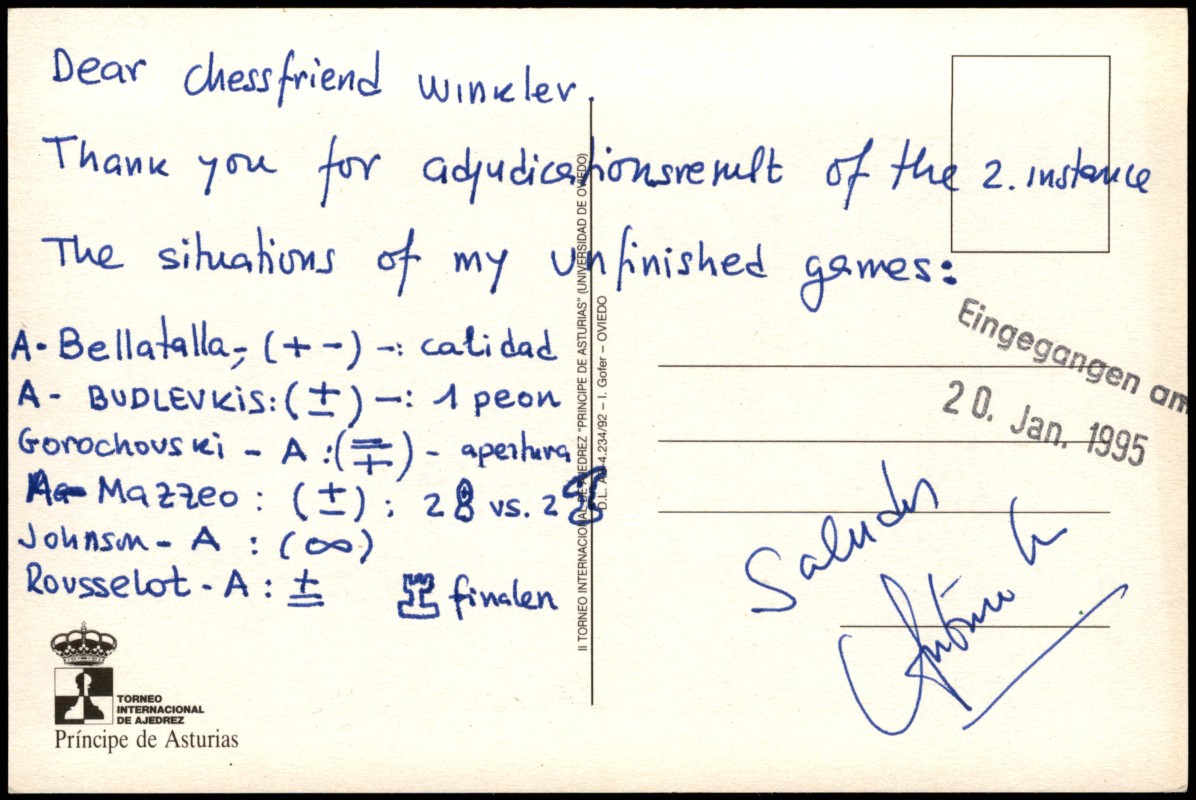 Dear chessfriend Winkler.
Thank you for adjudicationsresult of the 2. instance
The situations of my unfinished games:
A - Bellatalla; (+ -) -: calidad
A - BUDLEVKIS: (±) -: 1 peon
Gorochovski - A : (⩱) - apertura
Mazzeo : (±) : 2 vs. 2
Johnson - A : (∞)
Rousselot - A : ± finalen
Saludos
António
Eingegangen am
20. Jan. 1995
II TORNEO INTERNACIONAL DE AJEDREZ "PRINCIPE DE ASTURIAS" (UNIVERSIDAD DE OVIEDO)
D.L. AS-4.234/92 – I. Gofer – OVIEDO
TORNEO
INTERNACIONAL
DE AJEDREZ
Príncipe de Asturias